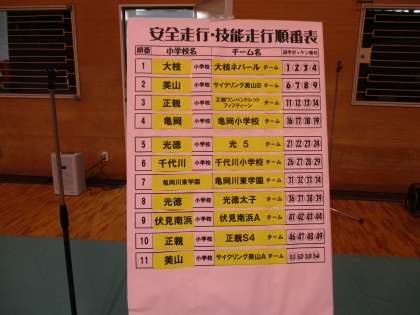 安全走行・技能走行順番表
順番 小学校名 チーム名
1 大枝 小学校 大枝ネバール チーム 1 2 3 4
2 美山 小学校 サイクリング美山B チーム 6 7 8 9
3 正親 小学校 正親ワンハンドレットフィフティーン チーム 11 12 13 14
4 亀岡 小学校 亀岡小学校 チーム 16 17 18 19
5 光徳 小学校 光 5 チーム 21 22 23 24
6 千代川 小学校 千代川小学校 チーム 26 27 28 29
7 亀岡川東学園 亀岡川東学園 チーム 31 32 33 34
8 光徳 小学校 光徳太子 チーム 36 37 38 39
9 伏見南浜 小学校 伏見南浜A チーム 41 42 43 44
10 正親 小学校 正親S4 チーム 46 47 48 49
11 美山 小学校 サイクリング美山A チーム 51 52 53 54